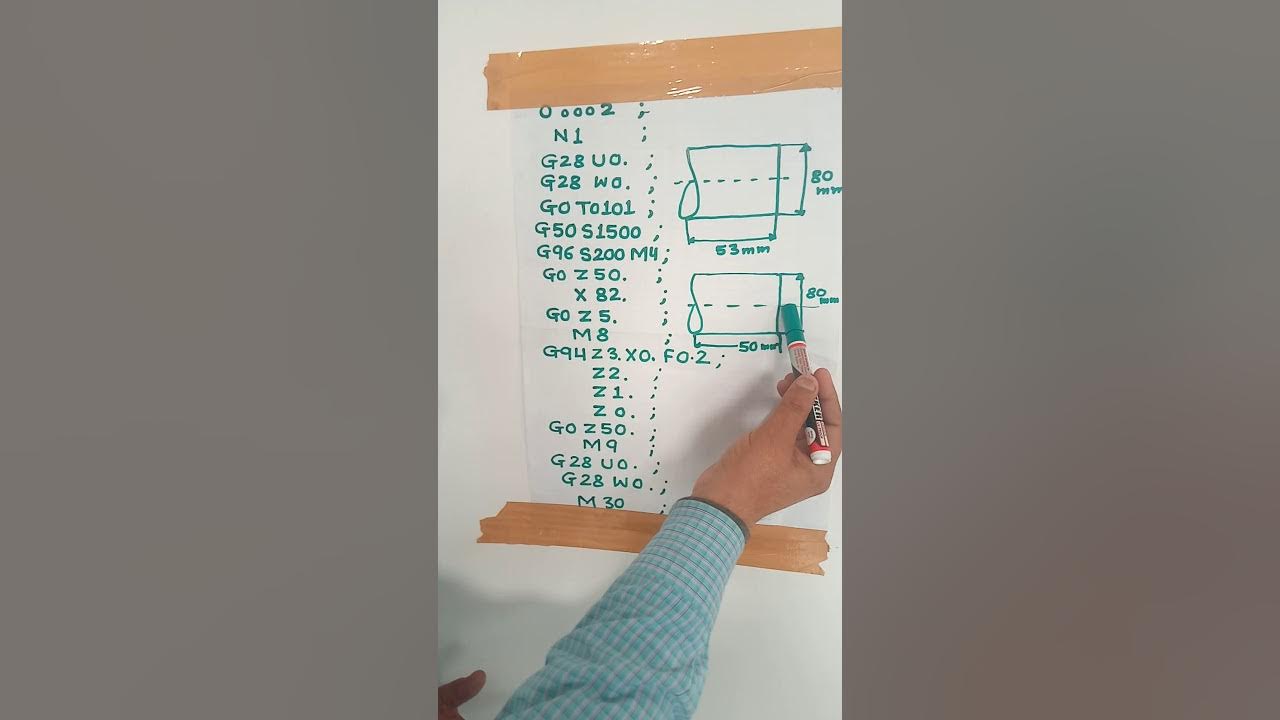 O 0002 ;
N1 ;
G28 U0. ;
G28 W0. ;
G0 T0101 ;
G50 S1500 ;
G96 S200 M4 ;
G0 Z50. ;
X 82. ;
G0 Z5. ;
M8 ;
G94 Z3. X0. F0.2 ;
Z2. ;
Z1. ;
Z0. ;
G0 Z50. ;
M9 ;
G28 U0. ;
G28 W0. ;
M30 ;
80
mm
53mm
80
mm
50 mm